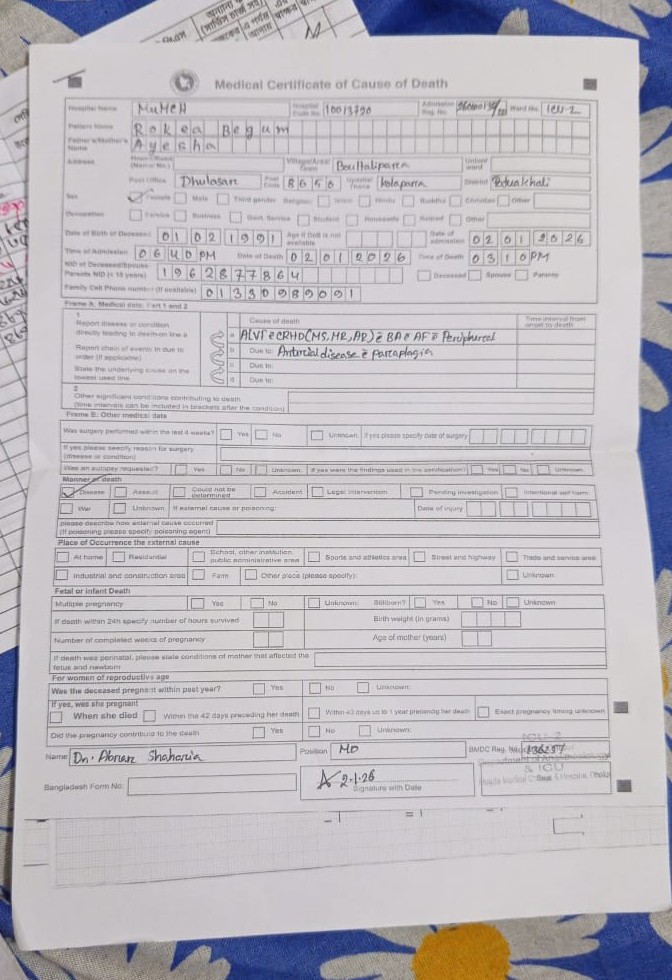 Medical Certificate of Cause of Death
Hospital Name MuMCH Hospital Code No. 10013790 Admission Reg. No. Ward No. ICU-2
Patient Name Rokea Begum
Father's/Mother's Name Ayesha
Address House/Road (Name/No.) Village/Area/Town Boultalipara Union/ward
Post Office Dhulasar Post Code 8650 Upazila/Thana kolapara District Patuakhali
Sex Female Male Third gender Religion: Islam Hindu Buddha Christian Other
Occupation Service Business Govt. Service Student Housewife Retired Other
Date of Birth of Deceased 01 02 1991 Age if DoB is not available Date of admission 02 01 2026
Time of Admission 0640 PM Date of Death 02 01 2026 Time of Death 0310 PM
NID of Deceased/Spouse/Parents NID (< 18 years) 1962877864 Deceased Spouse Parents
Family Cell Phone number (if available) 01330989091
Frame A: Medical data: Part 1 and 2
1 Cause of death Time interval from onset to death
Report disease or condition directly leading to death on line a
a ALVF c CRHD (MS, MR, AR) c BA c AF c Peripheral
Report chain of events in due to order (if applicable)
b Due to: Arterial disease c paraplegia
State the underlying cause on the lowest used line
c Due to:
d Due to:
2
Other significant conditions contributing to death (time intervals can be included in brackets after the condition)
Frame B: Other medical data
Was surgery performed within the last 4 weeks? Yes No Unknown If yes please specify date of surgery
If yes please specify reason for surgery (disease or condition)
Was an autopsy requested? Yes No Unknown If yes were the findings used in the certification? Yes No Unknown
Manner of death
Disease Assault Could not be determined Accident Legal intervention Pending investigation Intentional self harm
War Unknown If external cause or poisoning: Date of injury
please describe how external cause occurred (If poisoning please specify poisoning agent)
Place of Occurrence the external cause
At home Residential School, other institution, public administrative area Sports and athletics area Street and highway Trade and service area
Industrial and construction area Farm Other place (please specify): Unknown
Fetal or infant Death
Multiple pregnancy Yes No Unknown Stillborn? Yes No Unknown
If death within 24h specify number of hours survived Birth weight (in grams)
Number of completed weeks of pregnancy Age of mother (years)
If death was perinatal, please state conditions of mother that affected the fetus and newborn
For women of reproductive age
Was the deceased pregnant within past year? Yes No Unknown
If yes, was she pregnant
When she died Within the 42 days preceding her death Within 43 days up to 1 year preceding her death Exact pregnancy timing unknown
Did the pregnancy contribute to the death Yes No Unknown
ICU-2
Name Dr. Shaharia Position MO BMDC Reg. No.
& ICU
2.1.26
Bangladesh Form No: Signature with Date